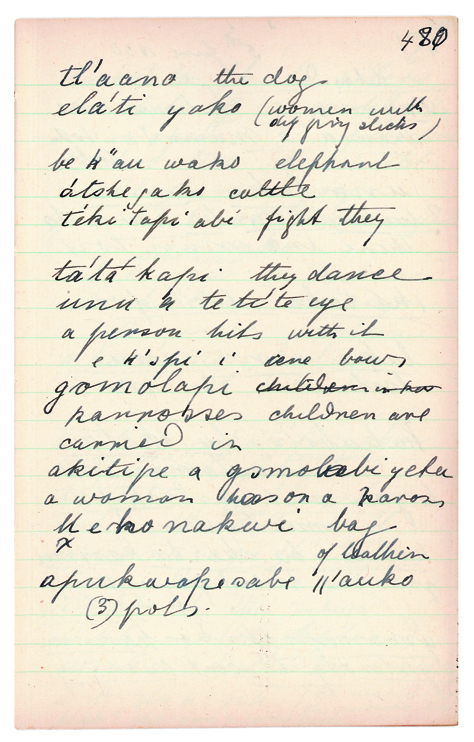 480
tl'aana the dog
eláti yako (women with
digging sticks)
be k"au wako elephant
átshegako cattle
téki tapi abi fight they
tátá kapi they dance
unu a te títe eye
a person hits with it
e k'api i are bows
gomolapi children in kar
karrosses children are
carried in
akitipe a gomolabi yeta
a woman has on a karos
nakwi bag
x of leather
apukwapesabe ||'auko
(3) pots.